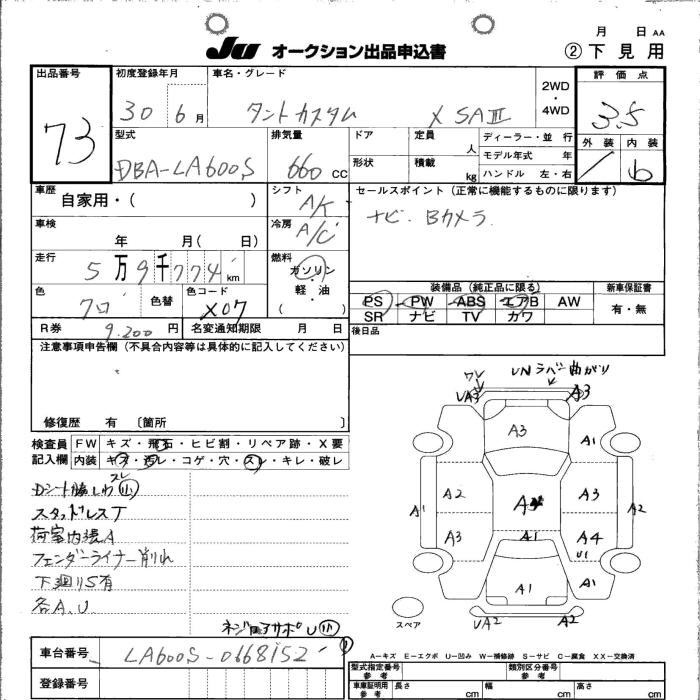 月 日 AA
JU オークション出品申込書 ② 下見用
出品番号 初度登録年月 車名・グレード 2WD・4WD 評価点
73 30 6月 タントカスタム X SAⅢ 3.5
型式 排気量 ドア 定員 人 ディーラー・並行 外装 内装
DBA-LA600S 660 CC 形状 積載 kg モデル年式 年
ハンドル 左・右 6
車歴 自家用・( ) シフト A/ セールスポイント(正常に機能するものに限ります)
車検 年 月( 日) 冷房 A/C ナビ. Bカメラ.
走行 5万9千774km 燃料 ガソリン・軽油・( )
色 色替 色コード X07 装備品(純正品に限る) 新車保証書
PS PW ABS エアB AW 有・無
SR ナビ TV カワ
R券 9.200円 名変通知期限 月 日 後日品
注意事項申告欄(不具合内容等は具体的に記入してください)
修復歴 有 〔箇所 〕
検査員 FW キズ・飛石・ヒビ割・リペア跡・X要
記入欄 内装 キズ・汚レ・コゲ・穴・スレ・キレ・破レ
スレ
Dシート脇しわ 小
スタッドレスT
荷室内張A
フェンダーライナー削れ
下廻りS有
各A.U
ワレ UA3 UNラバー曲がり A3
A3 A1
A2 A3 A3
A1 A2
A3 A1 A4
U1
A1 A1
UA2 A2
スペア
小
車台番号 LA600S-0668152
登録番号
A-キズ E-エクボ U-凹み W-補修跡 S-サビ C-腐食 XX-交換済
型式指定番号 参考 類別区分番号 参考
車庫証明用 参考 長さ cm 幅 cm 高さ cm